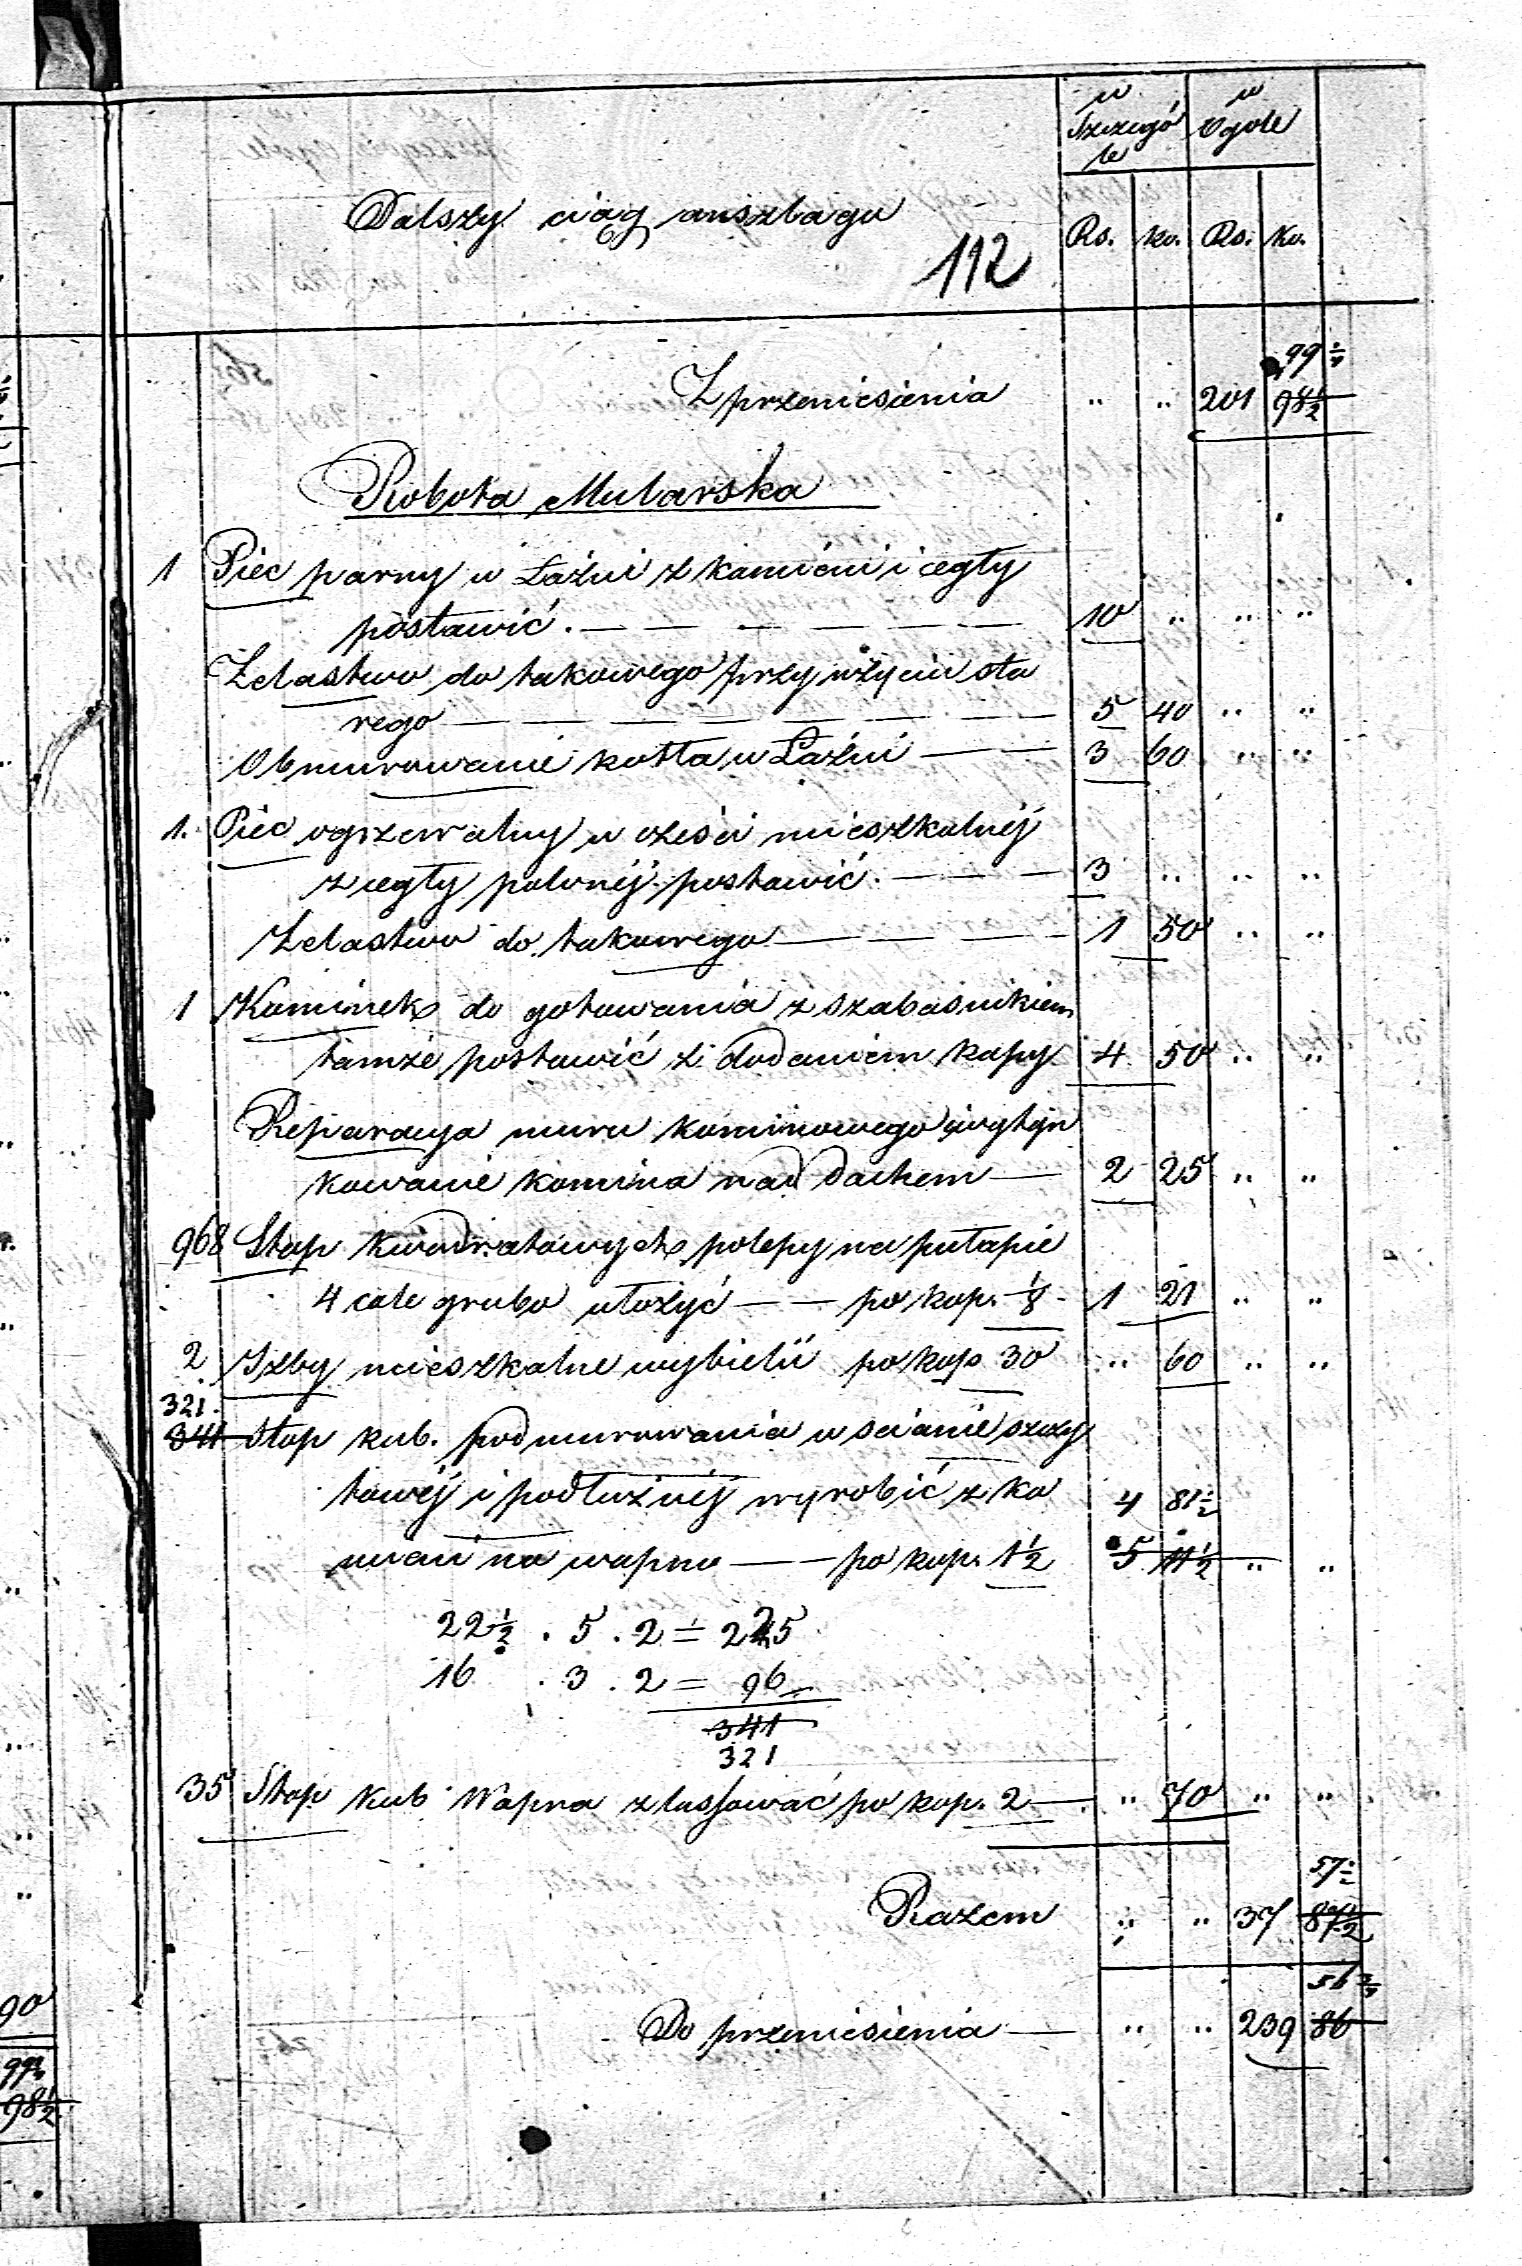 w Szczegó le w Ogole
Dalszy ciąg anszlagu
Rs. ko. Rs. ko.
112
99
Z przeniesienia " " 201 98½
Robota Mularska
1 Piec parny w Łaźni z kamieni i cegły
postawić. — — — — — — 10 " " "
Żelastwo do takowego przy użyciu sta
rego — — — — — — — 5 40 " "
Obmurowanie kotła w Łaźni — — 3 60 " "
1. Piec ogrzewalny w części mieszkalnéj
z cegły palonéj postawić. — — — 3 " " "
Żelastwo do takowego — — — — 1 50 " "
1 Kominek do gotowania z szabaśnikiem
tamże postawić z dodaniem kapy 4 50 " "
Reparacya muru kominowego i wytyn
kowanie komina nad dachem — 2 25 " "
968 Stop kwadratowych polepy na pułapie
4 cale grubo ułożyć — — po kop. ⅛ 1 21 " "
2 Izby mieszkalne wybielić po kop 30 " 60 " "
321.
341 Stop kub. podmurowania w scianie szczy
towéj i podłużnéj wyrobić z ka 4 81½
mieni na wapno — — po kop. 1½ 5 11½ " "
22½ . 5 . 2 = 225
16 . 3 . 2 = 96
341
321
35 Stop kub Wapna zlassować po kop. 2 — " 70 " "
57½
Razem " " 37 87½
56
Do przeniesienia — " " 239 86
90
99
98½